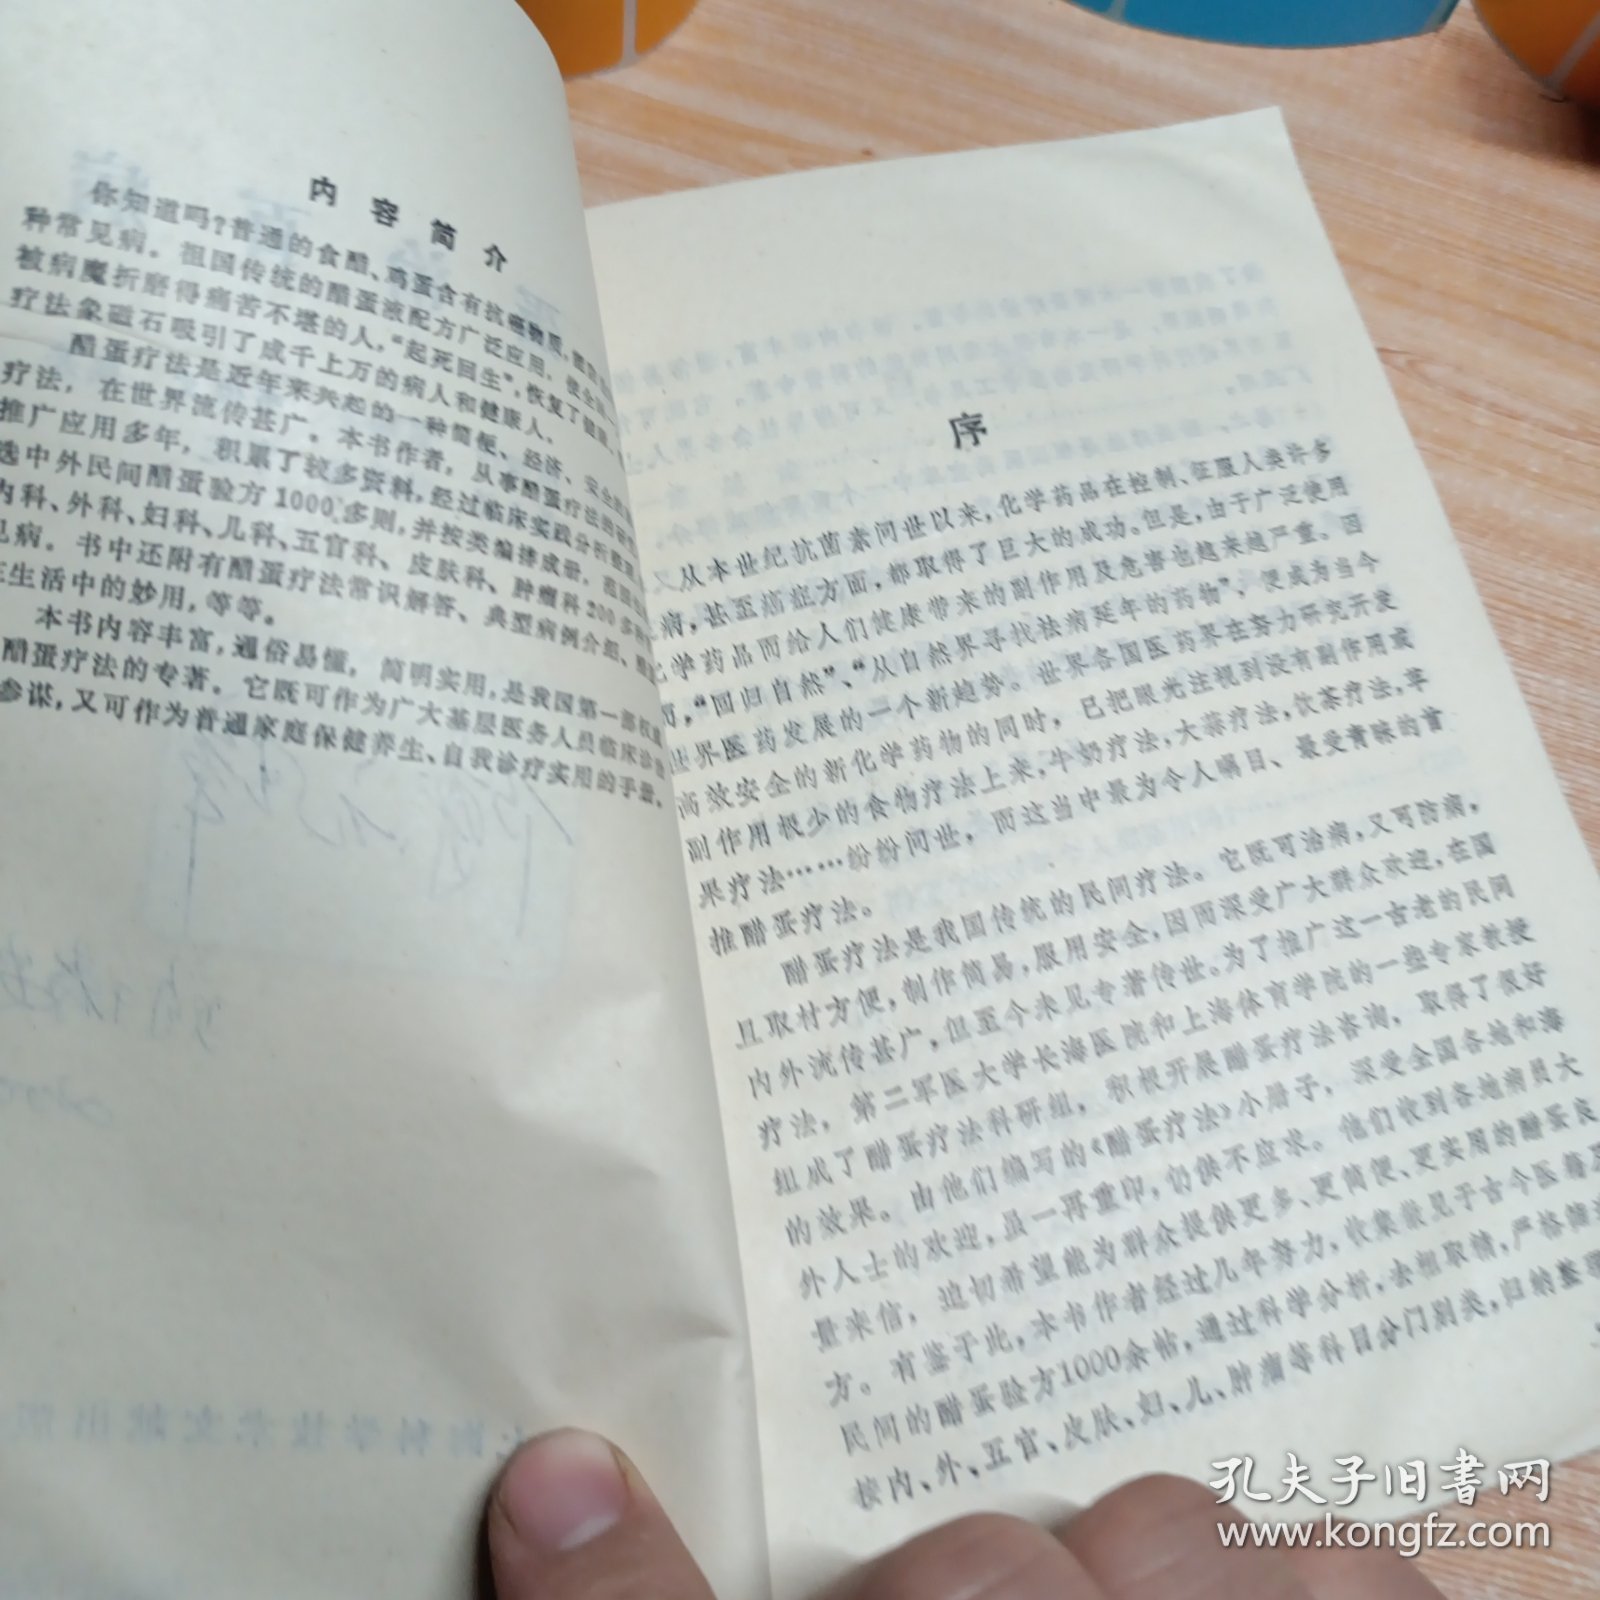 内容简介
你知道吗？普通的食醋、鸡蛋含有抗癌物质，
种常见病。祖国传统的醋蛋液配方广泛应用，使全
被病魔折磨得痛苦不堪的人，“起死回生”，恢复了健康
疗法象磁石吸引了成千上万的病人和健康人.
醋蛋疗法是近年来兴起的一种简便、经济、安全
疗法，在世界流传甚广。本书作者，从事醋蛋疗法的研究
推广应用多年，积累了较多资料，经过临床实践分析整理
选中外民间醋蛋验方1000多则，并按类编排成册，范围
内科、外科、妇科、儿科、五官科、皮肤科、肿瘤科200多种
见病。书中还附有醋蛋疗法常识解答、典型病例介绍、醋
生活中的妙用，等等。
本书内容丰富，通俗易懂，简明实用，是我国第一部权威
醋蛋疗法的专著。它既可作为广大基层医务人员临床诊
参谋，又可作为普通家庭保健养生、自我诊疗实用的手册。
序
从本世纪抗菌素问世以来，化学药品在控制、征服人类许多
病，甚至癌症方面，都取得了巨大的成功。但是，由于广泛使用
化学药品而给人们健康带来的副作用及危害也越来越严重。因
而，“回归自然”、“从自然界寻找祛病延年的药物”，便成为当今
世界医药发展的一个新趋势。世界各国医药界在努力研究开发
高效安全的新化学药物的同时，已把眼光注视到没有副作用或
副作用极少的食物疗法上来，牛奶疗法，大蒜疗法，饮茶疗法，苹
果疗法……纷纷问世，而这当中最为令人瞩目、最受青睐的首
推醋蛋疗法。
醋蛋疗法是我国传统的民间疗法。它既可治病，又可防病，
且取材方便，制作简易，服用安全，因而深受广大群众欢迎，在国
内外流传甚广，但至今未见专著传世。为了推广这一古老的民间
疗法，第二军医大学长海医院和上海体育学院的一些专家教授
组成了醋蛋疗法科研组，积极开展醋蛋疗法咨询，取得了很好
的效果。由他们编写的《醋蛋疗法》小册子，深受全国各地和海
外人士的欢迎，虽一再重印，仍供不应求。他们收到各地病员大
量来信，迫切希望能为群众提供更多、更简便、更实用的醋蛋良
方。有鉴于此，本书作者经过几年努力，收集散见于古今医籍及
民间的醋蛋验方1000余帖，通过科学分析，去粗取精，严格筛选
按内、外、五官、皮肤、妇、儿、肿瘤等科目分门别类，归纳整理
孔夫子旧书网
www.kongfz.com